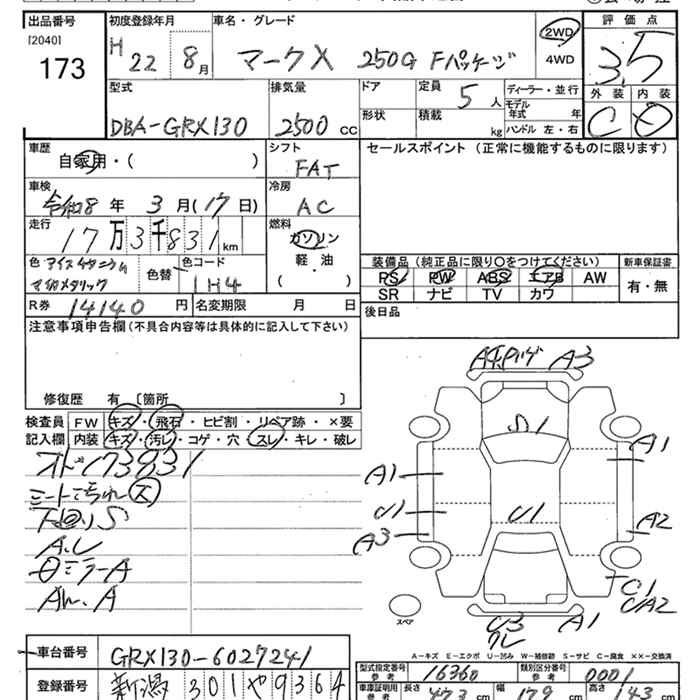 出品番号 初度登録年月 車名・グレード 評価点
[2040] H 22 8月 マークX 250G Fパッケージ 2WD 3.5
173 4WD
外装 内装
型式 排気量 ドア 定員 5人 ディーラー・並行
モデル年式 年
DBA-GRX130 2500 CC 形状 積載 kg ハンドル 左・右 C D
車歴 シフト セールスポイント (正常に機能するものに限ります)
自家用・( ) FAT
車検 冷房
令和8年 3月(17日) AC
走行 燃料
17万3千831km ガソリン
軽・油
( )
装備品 (純正品に限り○をつけてください) 新車保証書
色 アイスチタニウム 色替 色コード PS PW ABS エアB AW 有・無
マイカメタリック 1H4 SR ナビ TV カワ
R券 14140円 名変期限 月 日 後日品
注意事項申告欄 (不具合内容等は具体的に記入して下さい)
修復歴 有 〔箇所 〕
検査員 FW キズ・飛石・ヒビ割・リペア跡・×要
記入欄 内装 キズ・汚レ・コゲ・穴・スレ・キレ・破レ
173831
シートよごれ 大
下廻りS
A.U
ミラーA
A3
S1
A1 A1
U1 U1
A3 A2
C1
UA2
U3 A1
スペア
A-キズ E-エクボ U-凹み W-補修跡 S-サビ C-腐食 ××-交換済
車台番号 GRX130-6027241
型式指定番号 参考 16360 類別区分番号 参考 0001
登録番号 新潟 301 や 9364
車庫証明用 参考 長さ 473 cm 幅 179 cm 高 143 cm